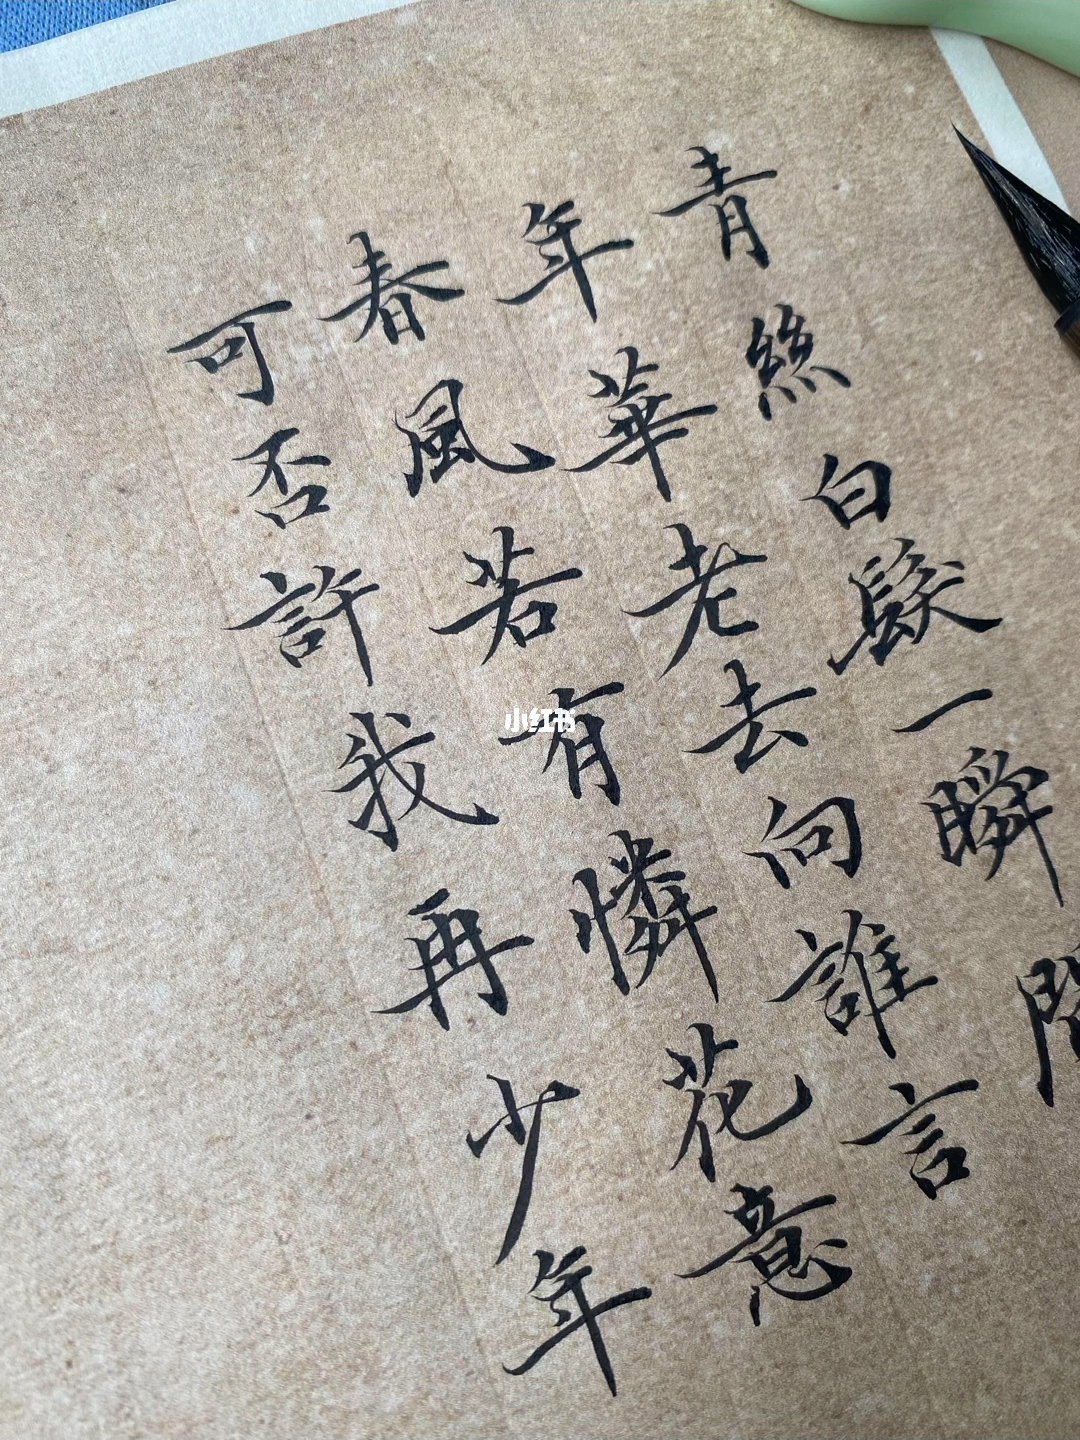 青絲白髮一瞬間
年華老去向誰言
春風若有憐花意
可否許我再少年
小红书